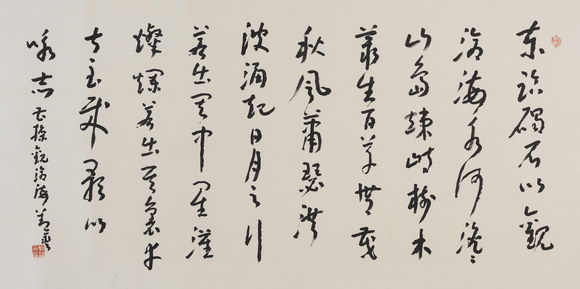 東臨碣石以觀
滄海水何澹〻
山島竦峙樹木
叢生百草豐茂
秋風蕭瑟洪
波涌起日月之行
若出其中星漢
燦爛若出其裏幸
甚至哉歌以
咏志 曹操觀滄海